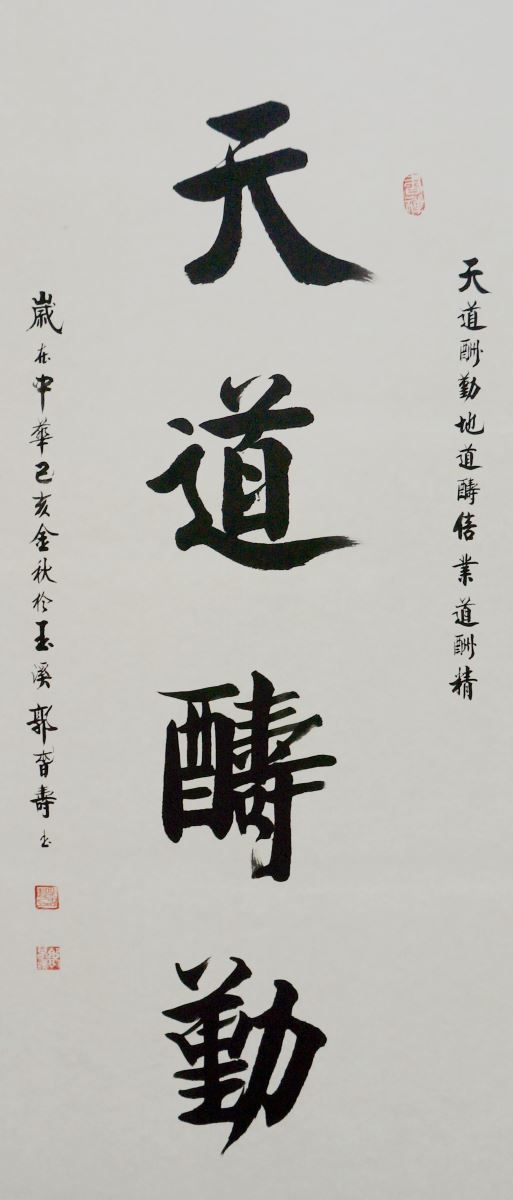 天道酬勤地道醻信業道酬精
天道醻勤
歲在中華己亥金秋於玉溪郭壽書